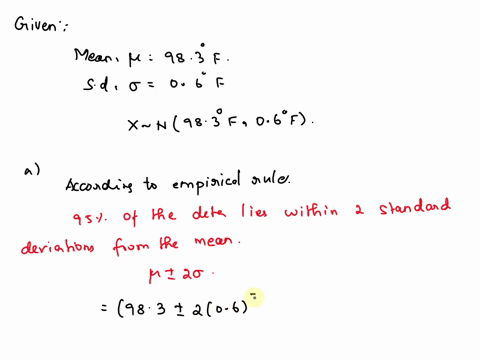 Given:
Mean, μ = 98.3° F.
S.d, σ = 0.6° F
X~N(98.3° F, 0.6° F).
a)
According to empirical rule.
95% of the data lies within 2 standard
deviations from the mean.
μ ± 2σ.
= (98.3 ± 2(0.6)